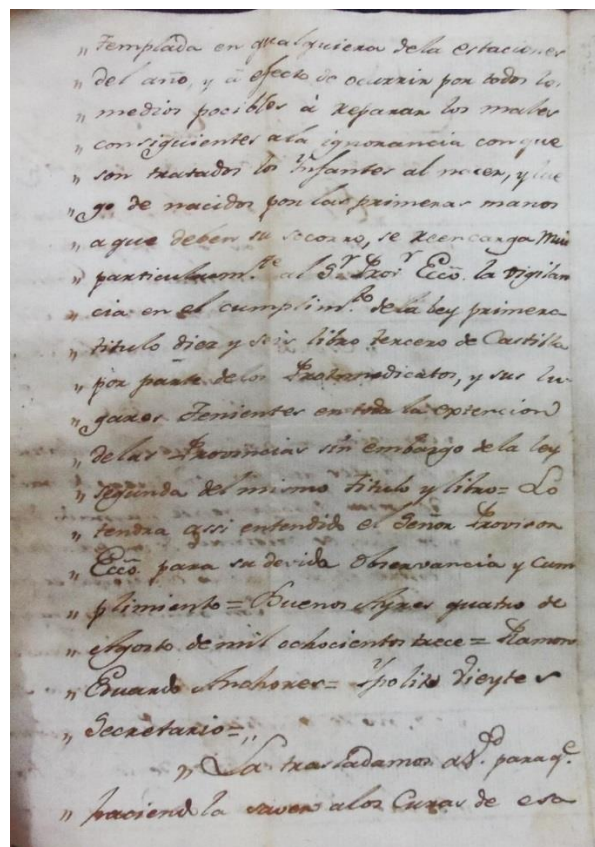 „ Templada en qualquiera dela estaciones
„ del año, y à efecto de ocurrir por todos los
„ medios pocibles à reparar los males
„ consiguientes ala ignorancia con que
„ son tratados los Ynfantes al nacer, y lue
„ go de nacidos por las primeras manos
„ aque deben su socorro, se reencarga mui
„ particularm.te al S.r Prov.r Ecc̃o. la vigilan
„ cia en el cumplim.to de la Ley primera
„ titulo diez y seis libro tercero de Castilla
„ por parte delos Protomedicatos, y sus lu-
„ gares Tenientes en toda la extencion
„ delas Provincias sin embargo de la ley
„ segunda del mismo titulo y libro= Lo
„ tendra assi entendido el Señor Provisor
„ Ecc̃o. para su devida observancia y cum
„ plimiento= Buenos Ayres quatro de
„ Agosto de mil ochocientos trece= Ramon
„ Eduardo Anchores= Ypolito Vieytes
„ Secretario=„
„ La trasladamos a V.d para q.e
„ haciend la saver alos Curas de esa